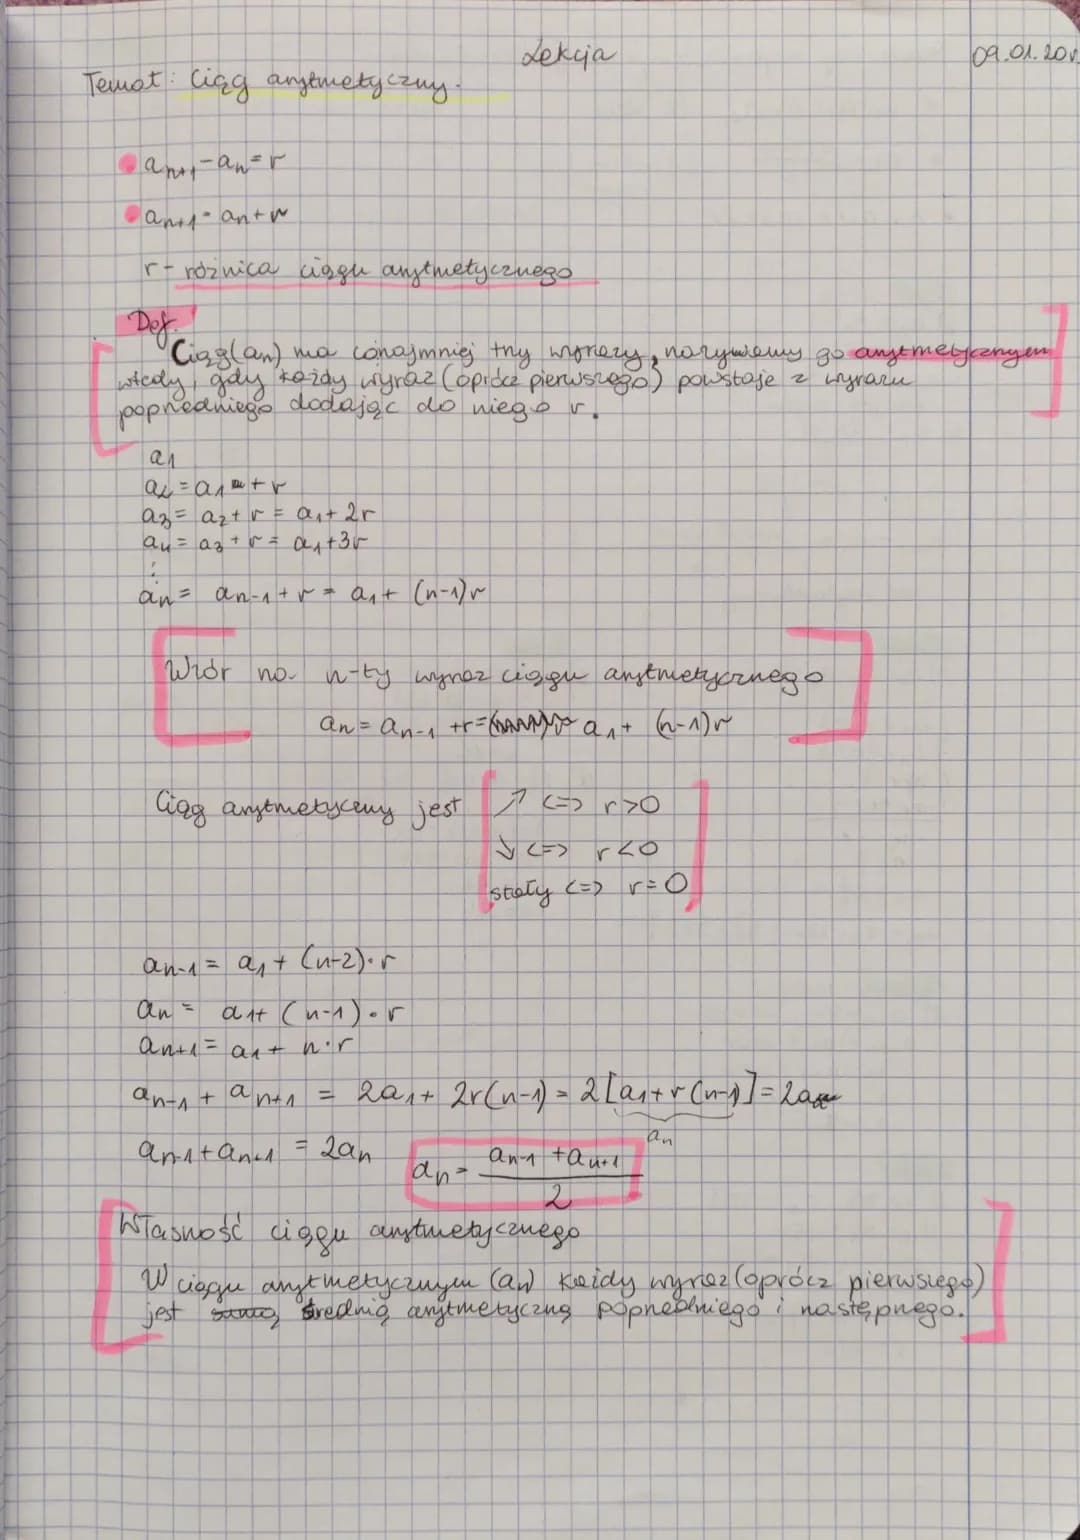 Lekcja
09.01.20
Temat: Ciąg arytmetyczny.
aₙ₊₁ - aₙ = r
aₙ₊₁ = aₙ + r
r - różnica ciągu arytmetycznego
Def.
Ciąg (aₙ) ma conajmniej trzy wyrazy, nazywamy go arytmetycznym
wtedy, gdy każdy wyraz (oprócz pierwszego) powstaje z wyrazu
poprzedniego dodając do niego r.
a₁
a₂ = a₁ + r
a₃ = a₂ + r = a₁ + 2r
a₄ = a₃ + r = a₁ + 3r
⋮
aₙ = aₙ₋₁ + r = a₁ + (n-1)r
Wzór na n-ty wyraz ciągu arytmetycznego
aₙ = aₙ₋₁ + r = a₁ + (n-1)r
Ciąg arytmetyczny jest ↗ <=> r>0
↘ <=> r<0
stały <=> r=0
aₙ₋₁ = a₁ + (n-2)·r
aₙ = a₁ + (n-1)·r
aₙ₊₁ = a₁ + n·r
aₙ₋₁ + aₙ₊₁ = 2a₁ + 2r(n-1) = 2[a₁ + r(n-1)] = 2a
aₙ
aₙ₋₁ + aₙ₊₁ = 2aₙ aₙ = (aₙ₋₁ + aₙ₊₁)/2
Własność ciągu arytmetycznego
W ciągu arytmetycznym (aₙ) każdy wyraz (oprócz pierwszego)
jest średnią arytmetyczną poprzedniego i następnego.